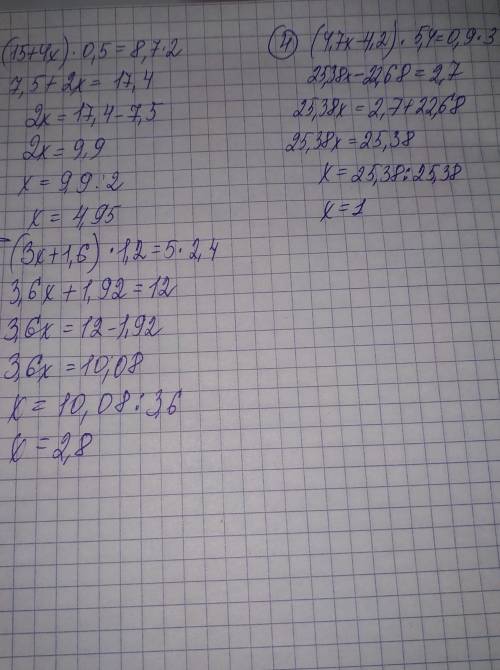 (15+4x)·0,5=8,7·2
7,5+2x=17,4
2x=17,4-7,5
2x=9,9
x=9,9:2
x=4,95
(3x+1,6)·1,2=5·2,4
3,6x+1,92=12
3,6x=12-1,92
3,6x=10,08
x=10,08:3,6
x=2,8
4 (4,7x-4,2)·5,4=0,9·3
25,38x-22,68=2,7
25,38x=2,7+22,68
25,38x=25,38
x=25,38:25,38
x=1